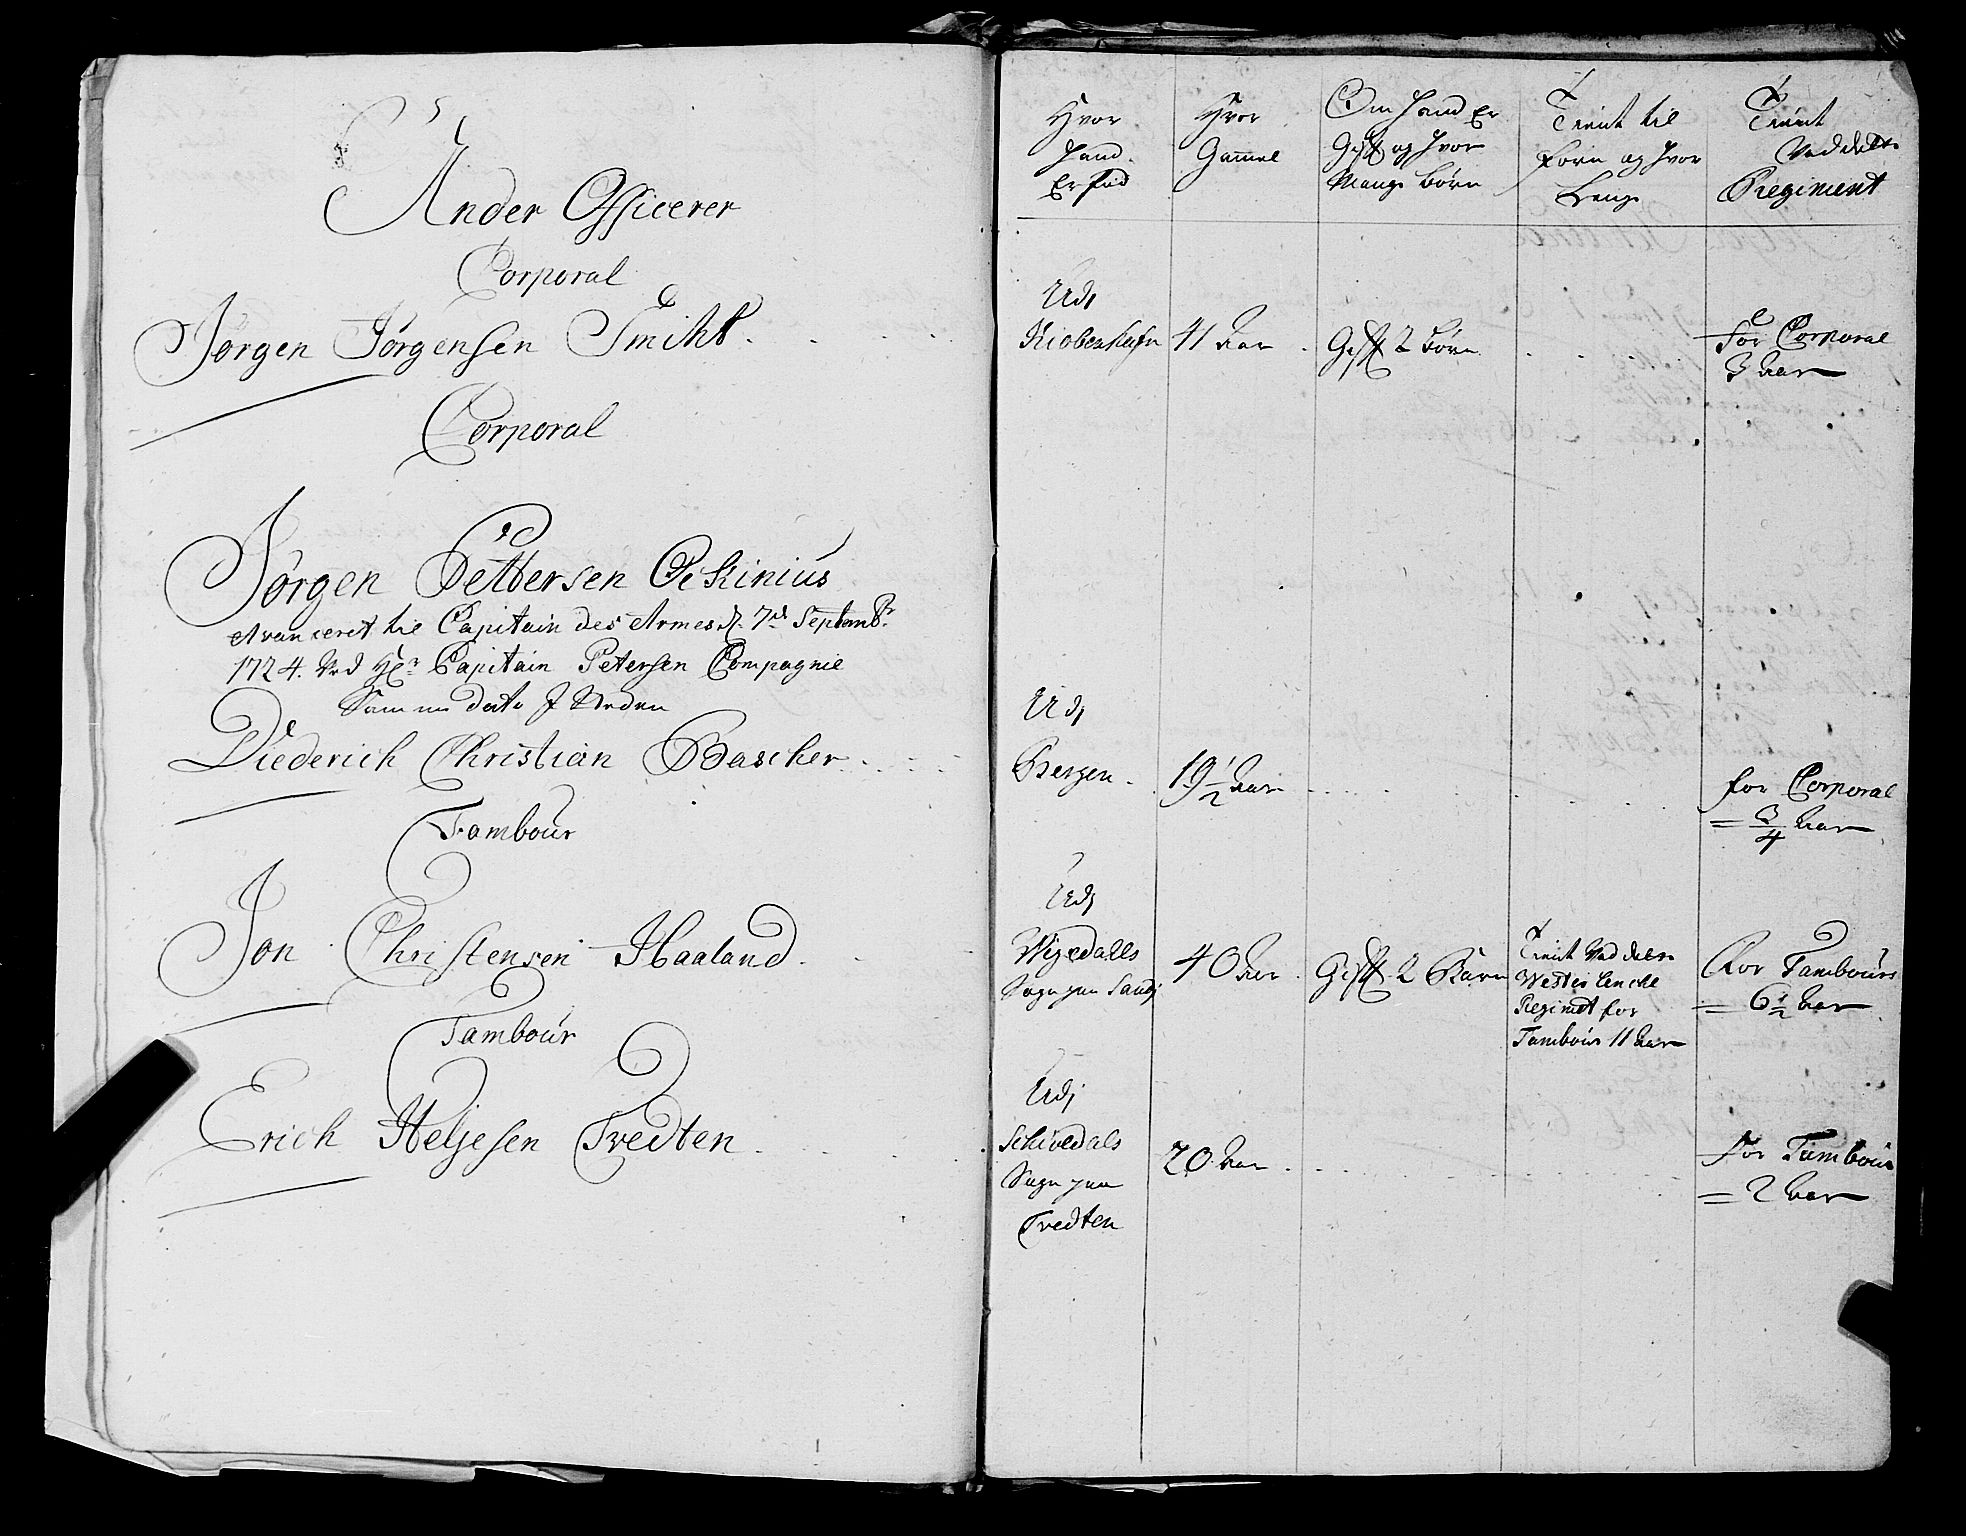 Under Officerer
Corporal
Jørgen Jørgensen Smiht
Corporal
Jørgen Pettersen Eckinius
Avanceret til Capitain des Armes d. 7de Septembr
1724. Ved Hr Capitain Petersen Compagnie
Samme dato J Steden
Diederich Christian Bascher
Tambour
Jon Christensen Haaland
Tambour
Erich Helgesen Tvedten
Hvor
hand
Er fød
Hvor
Gammel
Om hand Er
Gift og hvor
Mange børn
Tient til
forn og hvor
Lenge
Tient
Ved dette
Regiment
Udj
Kiobenhafn
41 aar
Gift 2 børn
For Corporal
3 aar
Udj
Bergen
19 1/2 aar
for Corporal
= 3/4 aar
Udj
Wigedalls
Sogn paa Sandj
40 aar
Gift 2 Børn
Tient Ved dette
Westerlencke
Regimt for
Tambour 11 aar
For Tambour
= 6 1/2 aar
Udj
Schivedals
Sogn paa
Tvedten
20 aar
For Tambour
= 2 aar